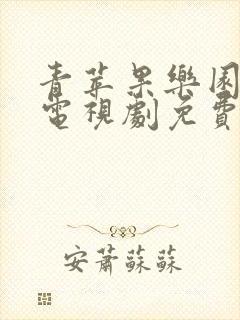 青苹果樂園
電視劇免費
安蕭蘇蘇